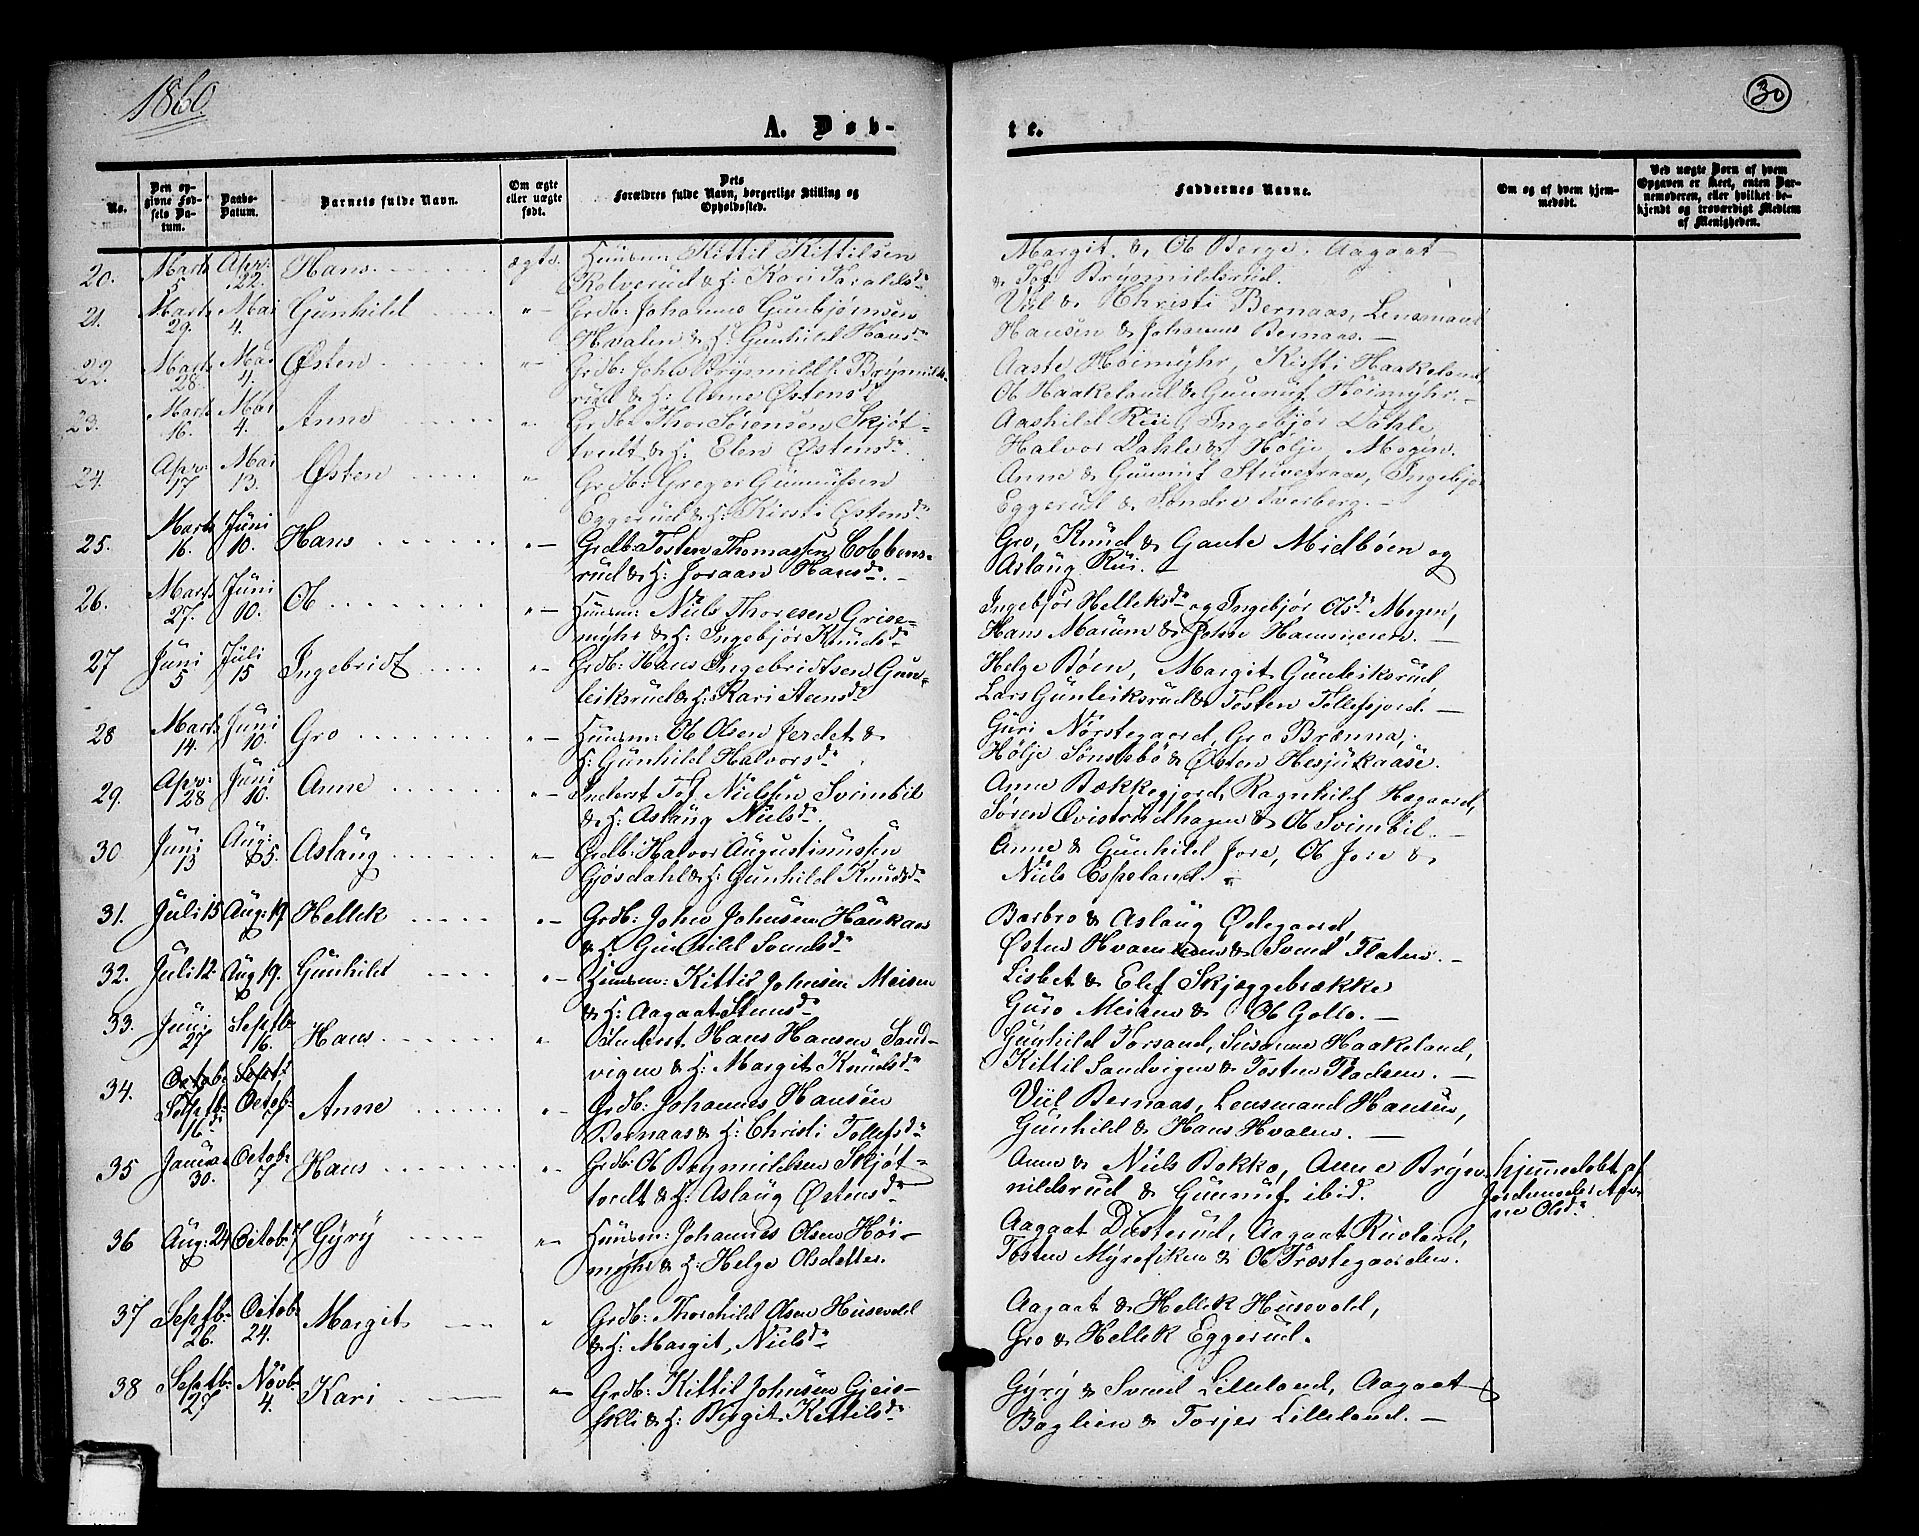 1860
30
A. Døb-
te.
No.
Den op-
givne Fød-
sels Da-
tum.
Daabs-
Datum.
Barnets fulde Navn.
Om ægte
eller uægte
født.
Dets
Forældres fulde Navn, borgerlige Stilling og
Opholdssted.
Faddernes Navne.
Om og af hvem hjem-
medøbt.
Ved uægte Børn af hvem
Opgaven er skeet, enten Bar-
nemoderen, eller hvilket be-
kjendt og troværdigt Medlem
af Menigheden.
20. Marts 5 Apr: 22. Hans ægte. Huusm: Kittil Kittilsen
Rolverud & H: Kari Haraldsd.
Margit & Ol Berge. Aagaat
& Tof Brynildsrud.
21. Marts 29. Mai 4. Gunhild "- Grdb: Johannes Gunbjørnsen
Hvalen & H: Gunhild Hansd.
Viil & Christi Bernaas, Lensmand
Hansen & Johannes Bernaas.
22. Marts 28. Mai 4. Østen "-
rud & H: Anne Østensd.
Aaste Høimyhr, Kirsti Haakeland,
Ol Haakeland & Gunnuf Høimyhr.
23. Marts 16. Mai 4. Anne "- Grdb: Thor Sørensen Skjøt-
vedt & H: Elen Østensd.
Aashild Rui, Ingebjør Dahle,
Halvor Dahle & Hølje Mogen.
24. Apr: 17 Mai 13. Østen "- Grdb: Gregar Gunnufsen
Eggerud & H: Kirsti Østensd.
Anne & Gunnuf Stuvetraae, Ingebjør
Eggerud & Søndre
25. Marts 16. Juni 10. Hans "- Grdb: Tosten Thomassen Cobbens-
rud & H: Joraan Hansd.
Gro, Knud & Gaute Midbøen og
Aslaug Rui.
26. Marts 27. Juni 10. Ol "- Huusm: Niels Thoresen Grise-
myhr & H: Ingebjør Knudsd.
Ingebjør Helleksd. og Ingebjør Olsd. Mogen,
Hans Marum & John
27 Juni 5 Juli 15 Ingebridt "- Grdb: Hans Ingebridtsen Gun-
leiksrud & H: Kari Steensd.
Helge Bøen, Margit Gunleiksrud,
Lars Gunleiksrud & Tosten Tollefsjord.
28 Marts 14. Juni 10. Gro "- Huusm: Ol Olsen Jerdet &
H: Gunhild Halvorsd.
Guri Nørstegaard, Gro Brænna,
Hølje Sønstebø & Østen Hesjukaase.
29. Apr: 28 Juni 10. Anne "- Inderst Tof Nielsen Svimbil
& H: Aslaug Nielsd.
Anne Bækkegjord, Ragnhild Hægaard,
Søren & Ol Svimbil.
30 Juni 13 Aug: 5. Aslaug "- Grdb: Halvor Augustinussen
Gjøsdahl & H: Gunhild Knudsd.
Anne & Gunhild Jore, Ol Jore &
Niels Espeland.
31. Juli 15 Aug: 19 Hellek "- Grdb: John Johnsen Haukaas
& H: Gunhild Svendsd.
Barbro & Aslaug Ødegaard,
Østen & Svend Flaten.
32. Juli 12. Aug 19. Gunhild "- Huusm: Kittil Johnsen Meisen
& H: Aagaat Steensd.
Lisbet & Elef Skjæggebrække
Guro Meisen & Ol Gollo.
33. Juni 27 Septb. 16. Hans " Inderst. Hans Hansen Sand-
vigen & H: Margit Knudsd.
Gunhild Torsand, Susanne Haakeland,
Kittil Sandvigen & Tosten
34. Septb: 16. Octob: 7 Anne "- Grdb: Johannes Hansen
Bernaas & H: Christi Tollefsd.
Viil Bernaas, Lensmand Hansen,
Gunhild & Hans Hvalen.
35 Januar 30. Octob: 7 Hans "- Grdb: Ol Brynildsen Skjøt-
vedt & H: Aslaug Østensd.
Anne & Niels Bekko, Anne Bryn-
nildsrud & Gunnuf ibid.
hjemmedøbt af
Jordemoder An-
ne Olsd.
36 Aug: 24 Octob: 7 Gyry "- Huusm: Johannes Olsen Høi-
myhr & H: Helge Olsdatter.
Aagaat Dæsterud, Aagaat Rueland,
Tosten Myrefiken & Ol Præstegaarden.
37 Septb: 26. Octob: 24. Margit " Grdb: Thorchild Olsen Husevold
& H: Margit Nielsd.
Aagaat & Hellek Husevold,
Gro & Hellek Eggerud.
38 Septb: 27 Novb: 4. Kari "- Grdb: Kittil Johnsen Gjeis-
& H: Birgit Kittilsd.
Gyry & Svend Lilleland, Aagaat
Baglien & Torjer Lilleland.